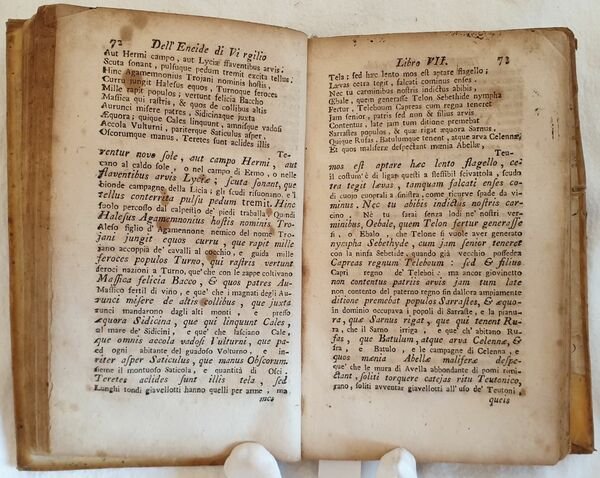 72 Dell'Eneide di Virgilio
Aut Hermi campo, aut Lyciæ flaventibus arvis;
Scuta sonant, pulsuque pedum tremit excita tellus;
Hinc Agamemnonius Trojani nominis hostis,
Curru jungit Halesus equos, Turnoque feroces
Mille rapit populos; vertunt felicia Baccho
Massica qui rastris, & quos de collibus altis
Aurunci misere patres, Sidicinaque juxta
Æquora; quique Cales linquunt, amnisque vadosi
Accola Volturni, pariterque Saticulus asper,
Oscorumque manus. Teretes sunt aclides illis
Te-
rentur novo sole, aut campo Hermi, aut
te al caldo sole, o nel campo di Ermo, o nelle
flaventibus arvis Lyciæ; scuta sonant, que
bionde campagne della Licia; gli scudi risuonano, e
tellus conterrita pulsu pedum tremit. Hinc
suolo percosso dal calpestio de' piedi traballa. Quindi
Halesus Agamemnonius hostis nominis Tro-
Aleso figlio d'Agamennone nemico del nome Tro-
jani jungit equos curru, que rapit mille
jano accoppia de' cavalli al cocchio, e guida mille
feroces populos Turno, qui rastris vertunt
feroci nazioni a Turno, que' che con le zappe coltivano
Massica felicia Baccho, & quos patres Au-
Massico fertil di vino, e que' che i magnati degli Au-
runci misere de altis collibus, que juxta
runci mandarono dagli alti monti, e presso
æquora Sidicina, que qui linquunt Cales,
al mare de' Sidicini, e que' che lasciano Cale,
que omnis accola vadosi Vulturni, que pa-
ed ogni abitante del guadoso Volturno, e in-
riter asper Saticulus, que manus Obscorum.
sieme il montuoso Saticola, e quantità di Osci.
Teretes aclides sunt illis tela, sed
Lunghi tondi giavellotti hanno quelli per arme, ma
mos
Libro VII. 73
Tela; sed hæc lento mos est aptare flagello;
Lævas cetra tegit, falcati cominus enses.
Nec tu carminibus nostris indictus abibis,
Œbale, quem generasse Telon Sebethide nympha
Fertur, Teleboum Capreas cum regna teneret
Jam senior, patriis sed non & filius arvis
Contentus, late jam tum ditione premebat
Sarrastes populos, & quæ rigat æquora Sarnus.
Quique Rufas, Batulumque tenent, atque arva Celennæ,
Et quos maliferæ despectant mœnia Abellæ,
Teu-
mos est aptare hæc lento flagello, ce-
il costum'è di ligar questi a flessibil sferzattola, scudo
tra tegit lævas, tamquam falcati enses co-
di cuojo cuoprali a sinistra, come ricurve spade da vi-
minus. Nec tu abibis indictus nostris car-
cino. Nè tu sarai senza lodi ne' nostri versi,
minibus, Oebale, quem Telon fertur generasse
o Ebalo, che Telone si vuole aver generato
nympha Sebethyde, cum jam senior teneret
con la ninfa Sebetide, quando già vecchio possedea
Capreas regnum Teleboum: sed & filius
Capri regno de' Teleboi: ma ancor giovinetto
non contentus patriis arvis jam tum late
non contento del paterno regno fin dallora ampiamente
ditione premebat populos Sarrastes, & æquo-
in dominio occupava i popoli di Sarraste, e la pianu-
ra, quæ Sarnus rigat, que qui tenent Ru-
ra, che il Sarno irriga, e que' ch'abitano Ru-
fas, que Batulum, atque arva Celennæ, &
fra, e Batulo, e le campagne di Celenna, e
quos mœnia Abellæ maliferæ despe-
que' che le mura di Avella abbondante di pomi mi-
ctant, soliti torquere catejas ritu Teutonico,
rano, soliti avventar giavellotti all' uso de' Teutoni,
queis